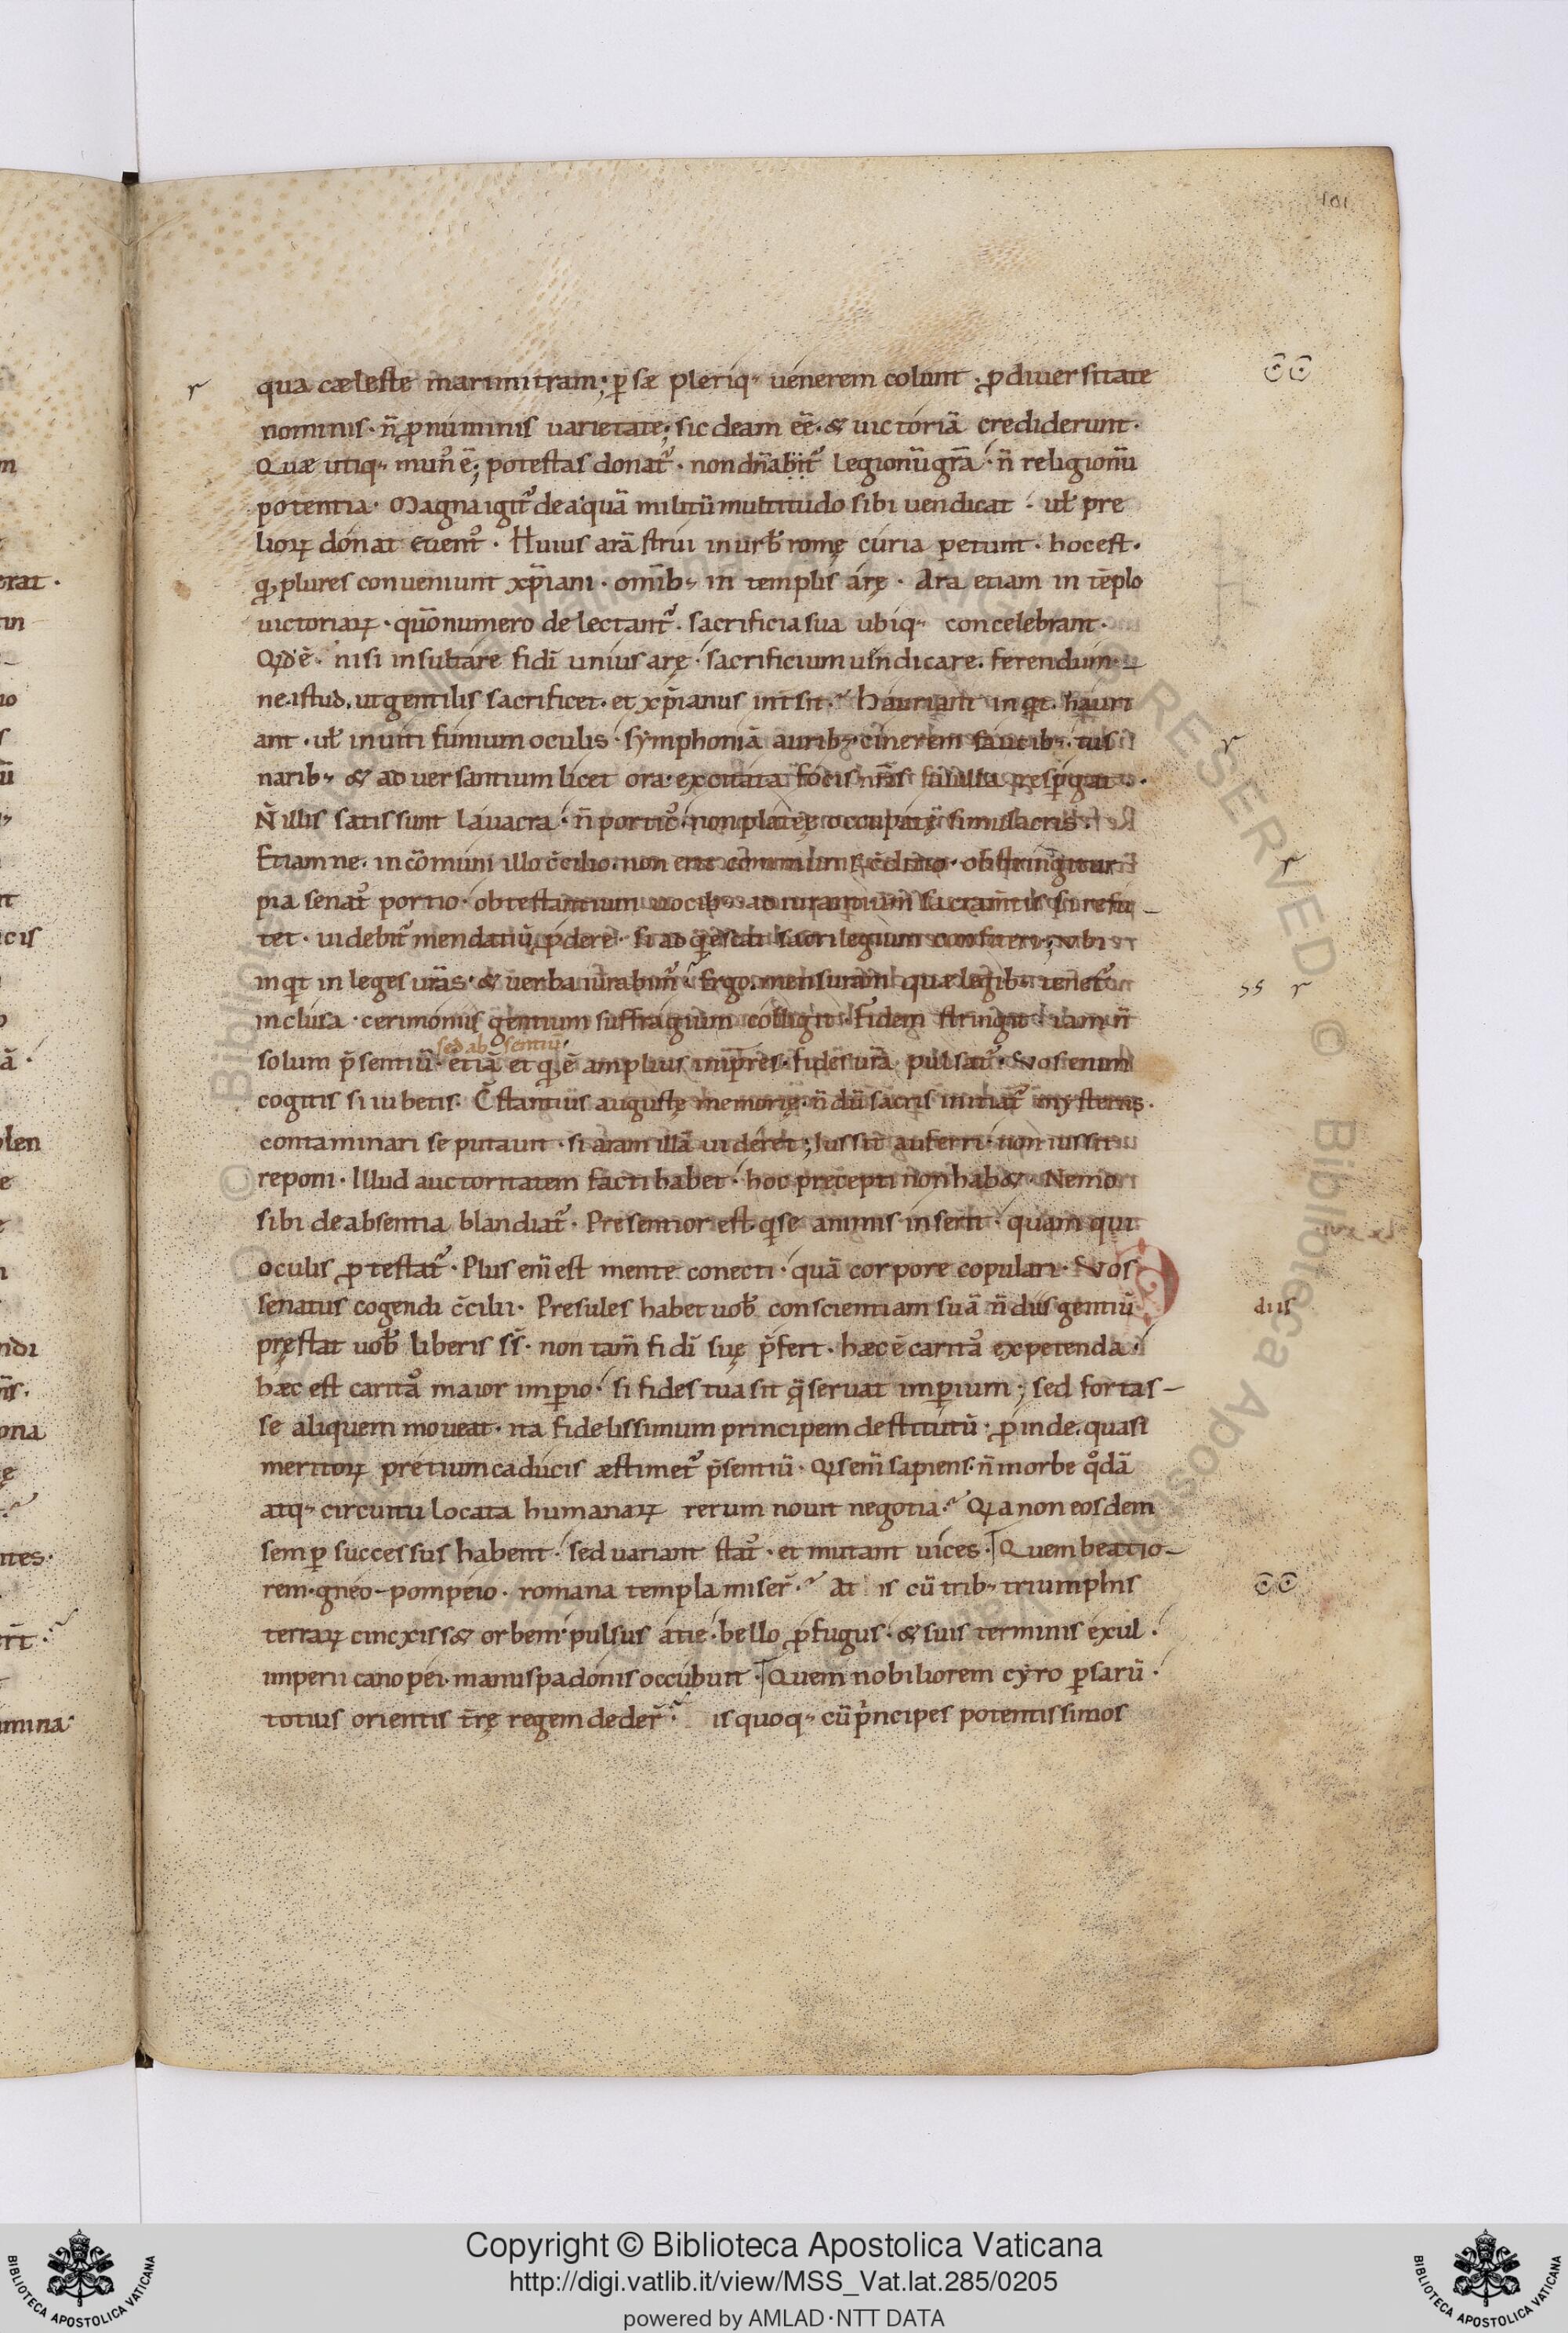 101
qua cæleste martimitram; ꝑsæ pleriq; uenerem colunt; ꝓ diuersitate
nominis · n̄ ꝓ numinis uarietate; sic deam eē · & uictoriā crediderunt ·
Quæ utiq; mun᷒ ē; potestas donat᷑ · non dn̄abit᷑ legionū gr̄a · n̄ religionū
potentia · Magna igit᷑ dea quā militū multitudo sibi uendicat · ut̵ pre
lioꝝ donat euent᷒ · Huius arā strui in urb̵ romę curia petunt · hoc est ·
q̵ plures conueniunt xp̄iani · omīb; in templis arę · Ara etiam in tēplo
uictoriaꝝ · qūo numero delectant᷑ · sacrificia sua ubiq; concelebrant ·
Qđ ē · nisi insultare fidī unius arę · sacrificium uindicare · ferendum-
ne · istud · ut gentilis sacrificet · et xp̄ianus int̄sit · Hauriant inqt · hauri
ant · ut̵ inuiti fumum oculis · symphoniā aurib; · cinerem faucib; · tus
narib; & aduersantium licet ora · excitata focis nr̄is fauilla respgat ·
N̄ illis satis sunt lauacra · n̄ portic᷒ · non plateę occupatę simulacris ·
Etiam ne · in cōmuni illo c̄cilio · non erit communis c̄ditio · obstringitur
pia senat᷒ portio · obtestantium uocib; · adiurantium sacram̄tis si refu-
tet · uidebit᷑ mendatiū ꝓdere · si adq̇escat · sacrilegium confiteri; ubi
inqt in leges urās · & uerba iurabim᷒ · Ergo · mensuram quæ legib; tenet᷑
inclusa · cerimoniis gentium suffragium colligit · fidem stringit · iam n̄
sed ab sentiū ·
solum p̄sentiū · etiā et q̵ ē amplius im̄pres · fides urā pulsat᷑ · Vos enim
cogitis si iubetis · C̄stantius augustę memorię · n̄dū sacris initiat᷒ mysteriis ·
contaminari se putauit · si aram illā uideret; Iussit auferri · non iussit
reponi · Illud auctoritatem facti habet · hoc precepti non hab& · Nemo
sibi de absentia blandiat᷑ · Presentior est · q̇ se animis inserit · quam qui
oculis ꝓtestat᷑ · Plus enī est mente conecti · quā corpore copulari · Vos
senatus cogendi c̄cilii · Presules habet uob̵ conscientiam suā n̄ dus gentiū
diis
pręstat uob̵ liberis sꝭ · non tam̄ fidī suę p̄fert · hæc ē carita᷒ expetenda ·
hæc est carita᷒ maior imꝑio · si fides tua sit q̄ seruat imꝑium; sed fortas-
se aliquem moueat · ita fidelissimum principem destitutū · ꝓinde · quasi
meritoꝝ pretium caducis æstimet᷑ p̄sentiū · Qs enī sapiens · n̄ in orbe q̊dā
atq; circuitu locata humanaꝝ rerum nouit negotia · Qa non eosdem
semꝑ successus habent · sed uariant stat᷒ · et mutant uices · Quem beatio-
rem · gneo-pompeio · romana templa miser̄ · At is cū trib; triumphis
terraꝝ cincxiss& orbem · pulsus atie · bello ꝓfugus · & suis terminis exul ·
imperii canopei · manu spadonis occubuit · Quem nobiliorem cyro ꝑsarū ·
totius orientis tr̄ę regem deder̄ · is quoq; cū ṗncipes potentissimos
m
erat ·
cis
ā ·
olen
ndi
ona
ntes ·
mina
Copyright © Biblioteca Apostolica Vaticana
http://digi.vatlib.it/view/MSS_Vat.lat.285/0205
powered by AMLAD·NTT DATA